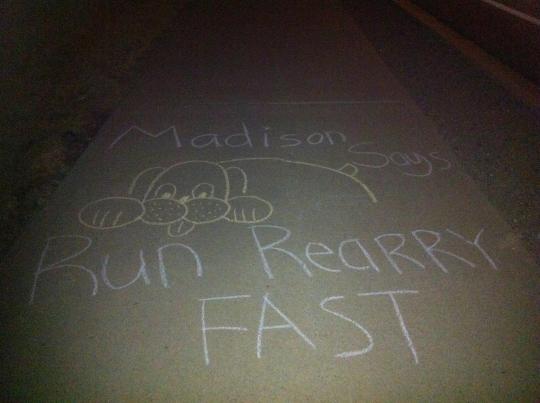 Madison Says
Run ReaRRY
FAST